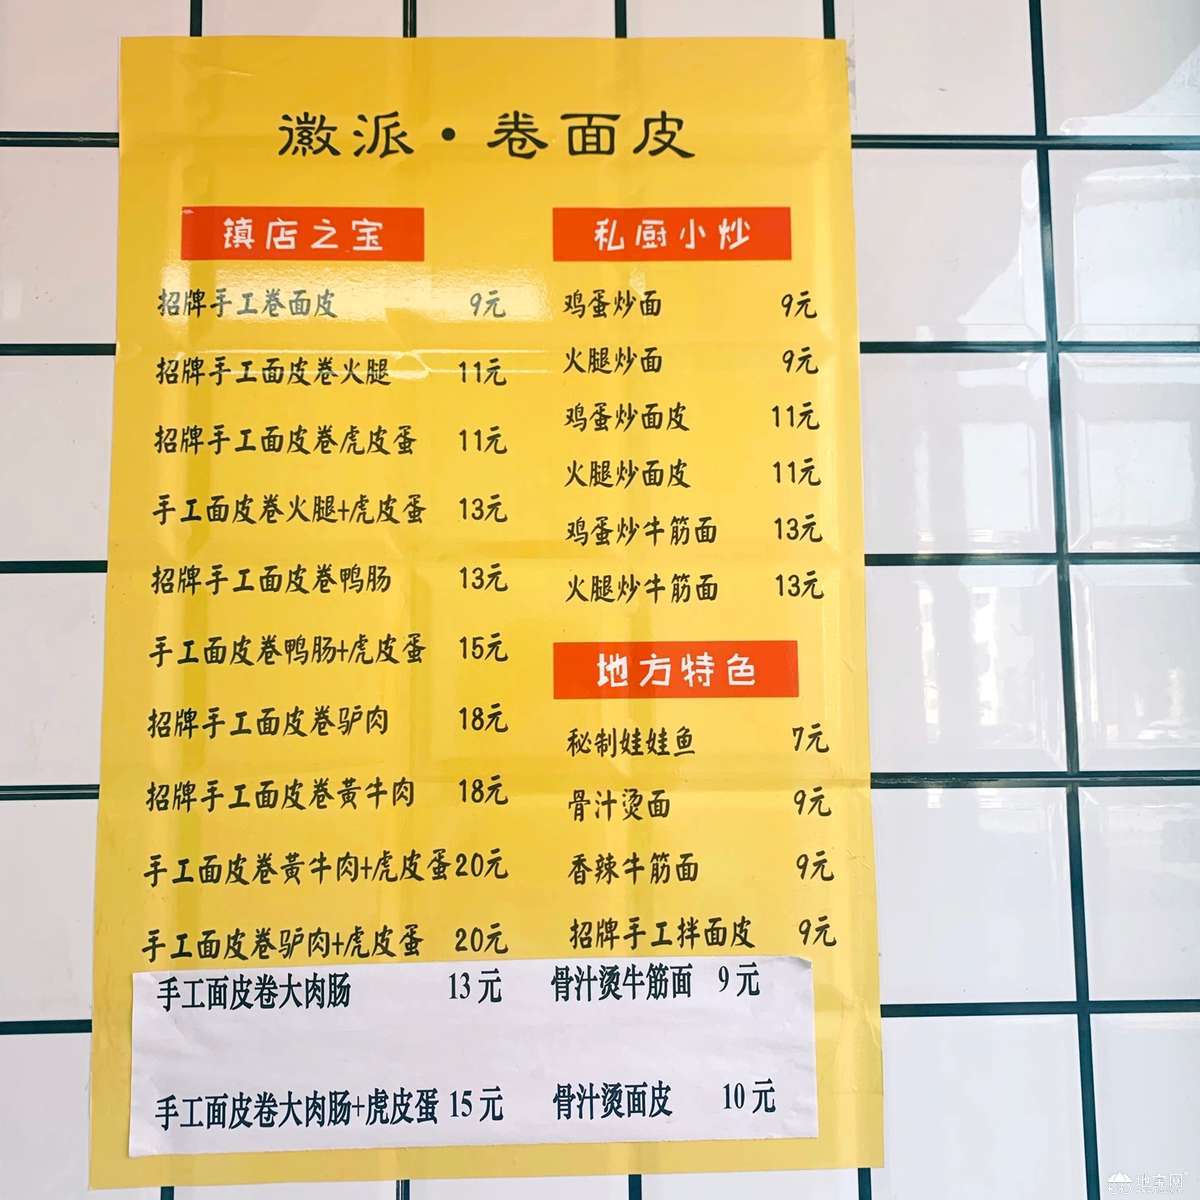 徽派·卷面皮
镇店之宝
招牌手工卷面皮 9元
招牌手工面皮卷火腿 11元
招牌手工面皮卷虎皮蛋 11元
手工面皮卷火腿+虎皮蛋 13元
招牌手工面皮卷鸭肠 13元
手工面皮卷鸭肠+虎皮蛋 15元
招牌手工面皮卷驴肉 18元
招牌手工面皮卷黃牛肉 18元
手工面皮卷黃牛肉+虎皮蛋 20元
手工面皮卷驴肉+虎皮蛋 20元
手工面皮卷大肉肠 13元
手工面皮卷大肉肠+虎皮蛋 15元
私厨小炒
鸡蛋炒面 9元
火腿炒面 9元
鸡蛋炒面皮 11元
火腿炒面皮 11元
鸡蛋炒牛筋面 13元
火腿炒牛筋面 13元
地方特色
秘制娃娃鱼 7元
骨汁烫面 9元
香辣牛筋面 9元
招牌手工拌面皮 9元
骨汁烫牛筋面 9元
骨汁烫面皮 10元
地宝网